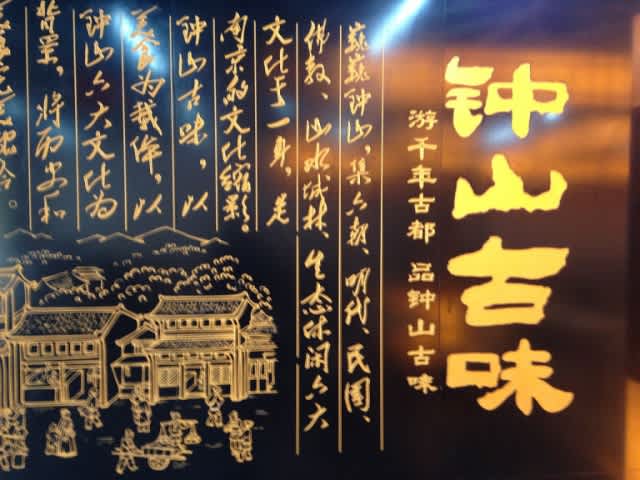 钟山古味
游千年古都 品钟山古味
巍巍钟山，集六朝、明代、民国、
佛教、山水城林、生态休闲六大
文化于一身，是
南京的文化缩影。
钟山古味，以
美食为载体，以
钟山六大文化为
背景，将历史和